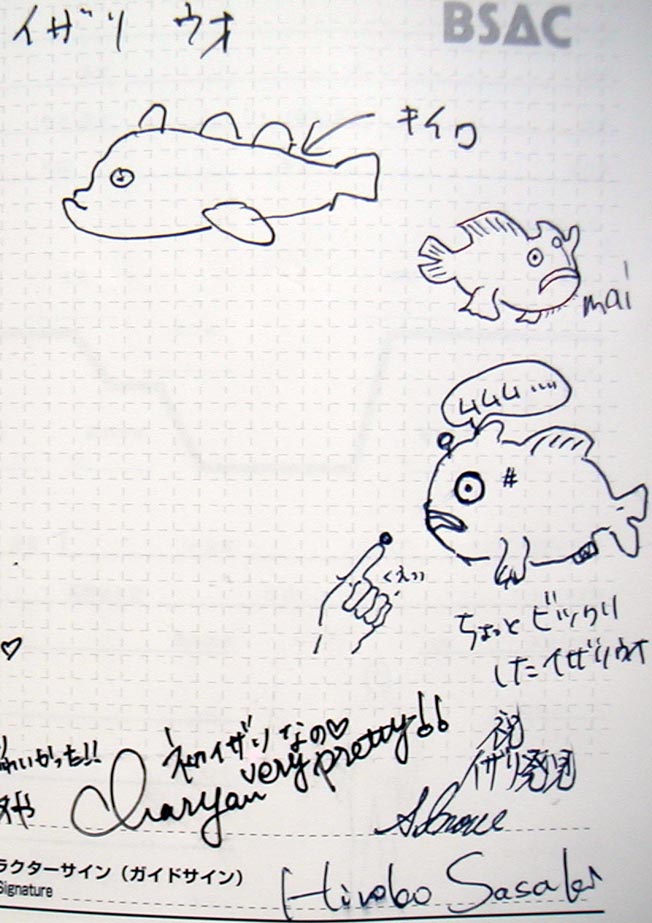 イザリ ウオ
BSAC
キイロ
mai
ムムム....
ちょっと ビックリ
した イザリウオ
初イザリなの♡
very pretty!!
祝
イザリ発見
わいかった!!
Charyan
ラクターサイン（ガイドサイン）
Signature
Hiroko Sasaki